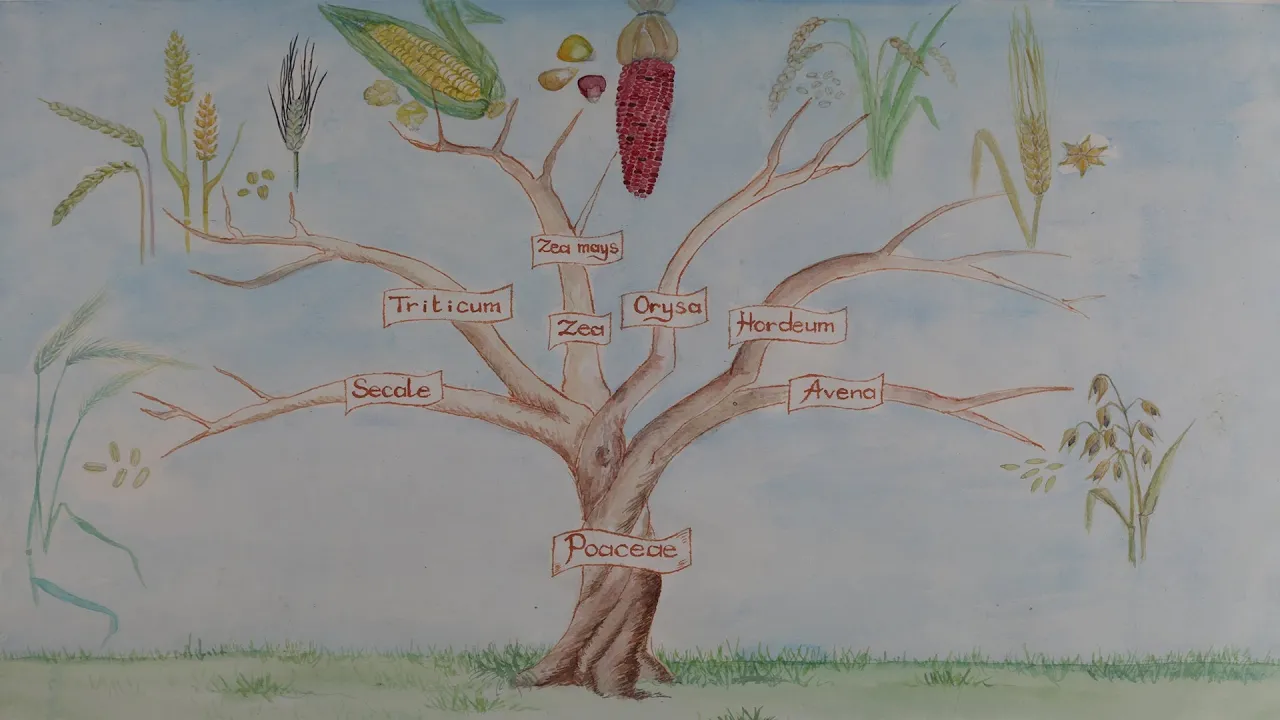 Zea mays
Triticum
Zea
Orysa
Hordeum
Secale
Avena
Poaceae